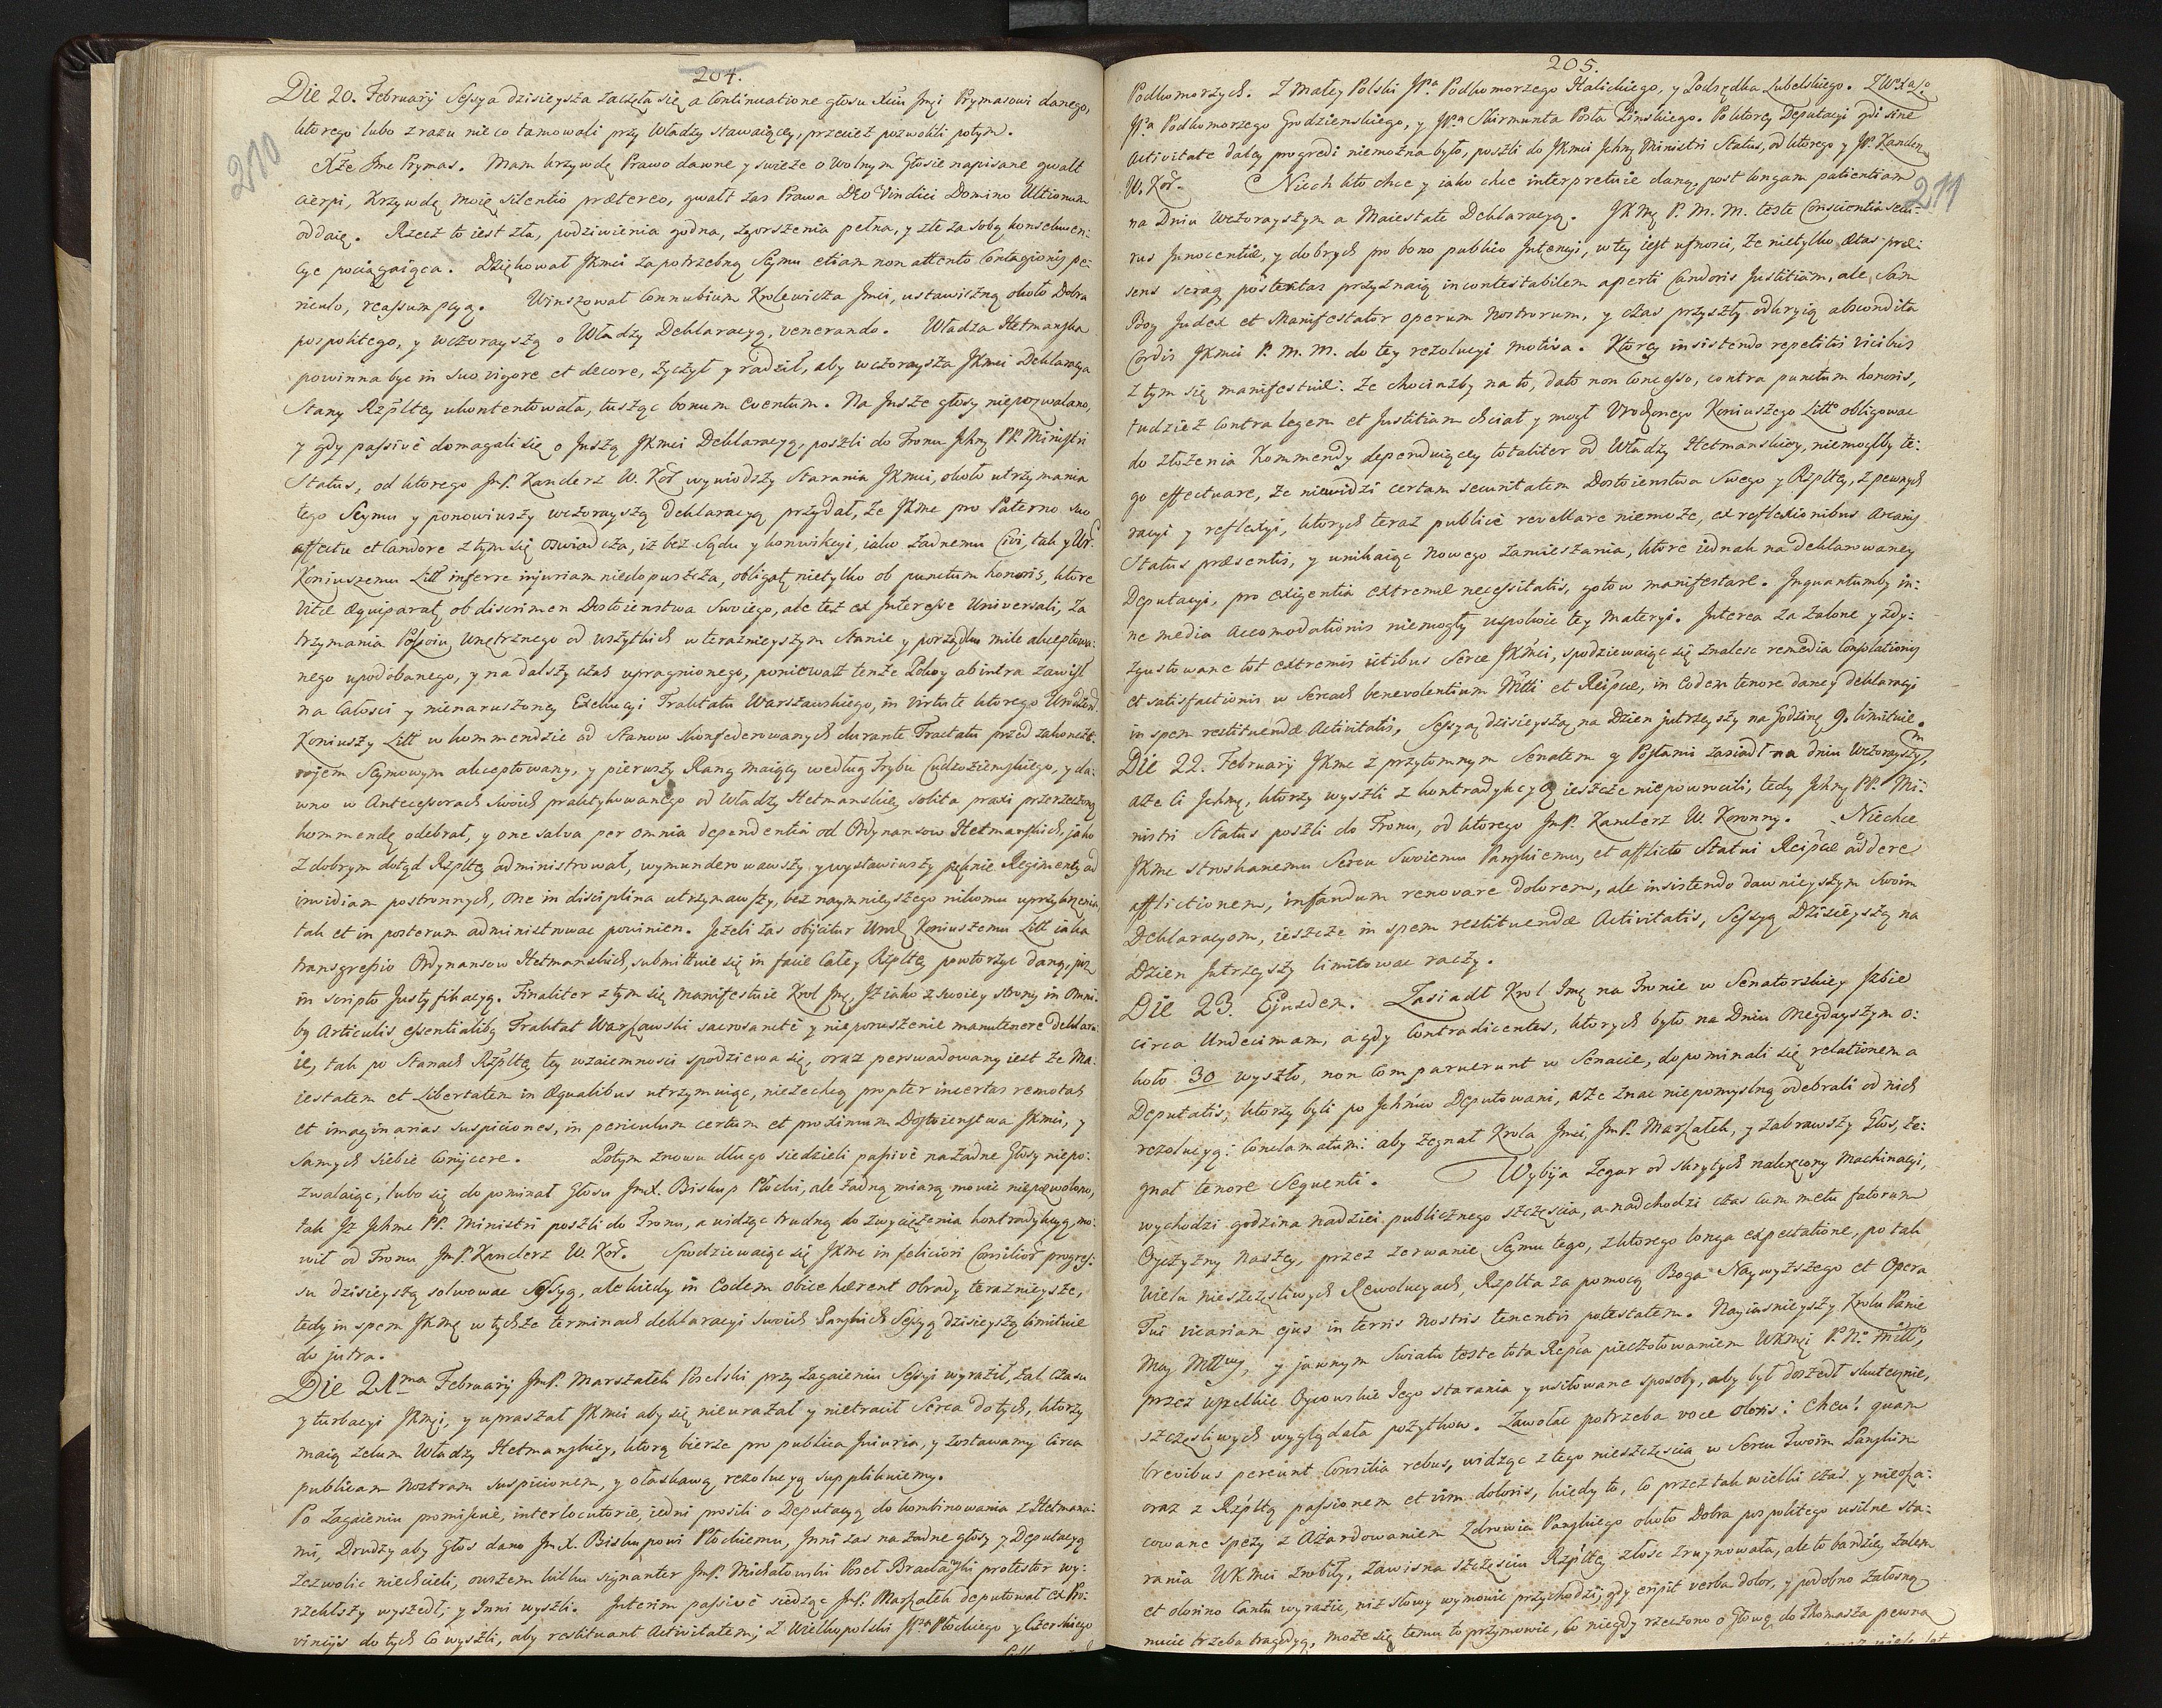 204.
210
Die 20. February Sessya dzisieysza zaczęła się a Continuatione głosu Xciu Jmći Prymasowi danego,
ktorego lubo zrazu nieco tamowali przy Władzy stawaiący, przecież pozwolili potym.
Xże Jme Prymas. Mam krzywdę Prawo dawne y swieże o Wolnym Głosie napisane gwałt
cierpi, Krzywdę moię silentio prætereo, gwałt zas Prawa Deo Vindici Domino Ultionum
oddaię. Rzecz to iest zła, podziwienia godna, zgorszenia pełna, y złe za sobą konsekwen:
cye pociągaiąca. Dziękował JKmći za potrzebną Seymu etiam non attento Contagionis pe:
riculo, reassumpcyą. Winszował Connubium Krolewicza Jmći, ustawiczną około Dobra
pospolitego, y wczorayszą o Władzy Deklaracyą, venerando. Władza Hetmańska
powinna byc in suo vigore et decore, życzył y radził, aby wczoraysza JKmći Deklaracya
Stany Rzpltey ukontentowała, tusząc bonum eventum. Na Insze głosy niepozwalano,
y gdy passivè domagali się o Inszą JKmći Deklaracyą, poszli do Tronu Jchmę PP. Ministri
Status, od ktorego Jmp. Kanclerz W. Kor wywiodszy Starania JKmći, około utrzymania
tego Seymu y ponowiwszy wczorayszą deklaracyą przydał, że JKme pro Paterno suo
affectu et candore z tym się oswiadcza, iż bez Sądu y konwikcyi, iako żadnemu Civi, tak y Ur.
Koniuszemu Litt inferre injuriam niedopuszcza, obligat, nietylko ob punctum honoris, ktore
vitæ æquiparat, ob discrimen Dostoienstwa Swoiego, ale też ex Interesse Universali, za
trzymania Pokoiu wnętrznego od wszytkich w teraznieyszym Stanie y porządku mile akceptowa:
nego upodobanego, y na dalszy czas upragnionego, ponieważ tenże Pokoy ab intra zawisł
na całosci y nienaruszoney Exekucyi Traktatu Warszawskiego, in virtute ktorego
Koniuszy Litt w kommendzie od Stanow Skonfederowanych durante Tractatu przed zakoncz:
Seymowym akceptowany, y pierwszy Rang maiący według Trybu Cudzoziemskiego, y da:
wno w Antecessorach Swoich praktykowanego od Władzy Hetmanskiey solita praxi przerzeczoną
kommendę odebrał, y one salva per omnia dependentia od Ordynansow Hetmańskich, jako
z dobrym dotąd Rzpltey administrował, wymunderowawszy y wystawiwszy pięknie Regimenty ad
invidiam postronnych, one in disciplina utrzymawszy, bez naymnieyszego nikomu uprzykrzenia,
tak et in posterum administrowac powinien. Jeżeli zas obijcitur Koniuszemu Litt iaka
transgressio Ordynansow Hetmanskich, submittuie się in facie całey Rzpltey powtorzyc daną, już
in scripto Justyfikacyą. Finaliter z tym się manifestuie Krol Jmę, Iż iako z swoiey strony in omni:
by Articulis essentialiby Traktat Warszawski sacrosanctè y nieporuszenie manutenere deklaru
ie, tak po Stanach Rzpltey tey wzaiemnosci spodziewa się, oraz perswadowany iest że Ma:
iestatem et Libertatem in æqualibus utrzymuiąc, niezechcą propter incertas remotas
et imaginarias suspiciones, in periculum certum et proximum Dostoienstwa JKmći, y
samych siebie conijcere. Potym znowu długo siedzieli passivè na żadne Głosy niepo:
zwalaiąc, lubo się dopominał Głosu Jmx. Biskup Płocki, ale żadną miarą mowić niepozwolono,
tak Iż Jchme PP. Ministri poszli do Tronu, a widząc trudną do zwyciężenia kontradykcyą, mo:
wił od Tronu Jmp. Kanclerz W. Kor. Spodziewaiąc się JKme in feliciori Consiliorum progres:
su dzisieyszą solwowac Sessyą, ale kiedy in eodem obice hærent obrady teraznieysze,
tedy in spem JKmę w tychże terminach deklaracyi swoich Pańskich Sessyą dzisieyszą limituie
do jutra.
Die 21ma February Jmp. Marszałek Poselski przy Zagaieniu Sessyi wyraził, żal czasu
y turbacyi JKmći, y upraszał JKmći aby się nieurażał y nietracił Serca do tych, ktorzy
maią zelum Władzy Hetmańskiey, ktorą bierze pro publica Iniuria, y zostawamy circa
publicam nostram suspicionem, y o łaskawą rezolucyą supplikuiemy.
Po Zagaieniu promiscuè, interlocutoriè, iedni prosili o Deputacyą do kombinowania z Hetmana:
mi, Drudzy aby Głos dano Jmx. Biskupowi Płockiemu, Inni zas na żadne głosy y Deputacyą
zezwolic niechcieli, owszem kilku signanter Jmp. Michałowski Poseł Bracławski protestor wy:
rzekłszy wyszedł, y Inni wyszli. Interim passivè siedząc Jmp. Marszałek deputował ex Pro:
vincijs do tych co wyszli, aby restituant Activitatem; z Wielkopolski Jpa Płockiego y Czerskiego
205.
211
Podkomorzych. Z Małey Polski Jpa Podkomorzego Halickiego, y Podsędka Lubelskiego. Z W.
Jpa Podkomorzego Grodzienskiego, y Jpa Skirmunta Posła Pinskiego. Po ktorey Deputacyi gdi sine
Activitate daley progredi niemożna było, poszli do JKmći Jchmę Ministri Status, od ktorego y Jp. Kanclerz
W. Kor. Niech kto chce y iako chce interpretuie daną, post longam patientiam
na Dniu wczorayszym a Maiestate Deklaracyą. JKmę P. M. M. teste Conscientia secu:
rus Innocentiæ, y dobrych pro bono publico Intencyi, w tey iest ufnosci, że nietylko ætas præ:
sens seraq posteritas przyznaią incontestabilem aperti Candoris Iustitiam, ale, Sam
Bog Judex et Manifestator operum Nostrorum, y czas przyszły odkryią abscondita
Cordis JKmći P. M. M. do tey rezolucyi motiva. Ktorey insistendo repetitis vicibus
z tym się manifestuie: że chociażby na to, dato non concesso, contra punctum honoris,
tudzież contra legem et Iustitiam chciał y mogł Urodzonego Koniuszego Litto obligowac
do złożenia Kommendy dependuiącey totaliter od Władzy Hetmanskiey, niemogłby te:
go effectuare, że niewidzi certam securitatem Dostoienstwa Swego y Rzpltey, z pewnych
racyi y reflexyi, ktorych teraz publicè revellare niemoże, ex reflexionibus Arcanis
Status præsentis, y unikaiąc nowego zamieszania, ktore iednak na deklarowaney
Deputacyi, pro exigentia extremæ necessitatis, gotow manifestare. Inquantumby in:
ne media Accomodationis niemogły uspokoic tey Materyi. Interea za żalone y zdy:
zgustowane tot extremis ictibus Serce JKmći, spodziewaiąc się znalesc remedia Consolationis
et satisfactionis w Sercach benevolentium Wtti et Reipcæ, in eodem tenore daney deklaracyi
in spem restituendæ Activitatis, Sessyą dzisieyszą na Dzien jutrzeyszy na Godzinę 9. limituie.
Die 22. February JKme z przytomnym Senatem y Posłami zasiadł na dniu wczorayszym,
aże ci Jchmę, ktorzy wyszli z kontradykcyą ieszcze niepowrocili, tedy Jchmę PP. Mi:
nistri Status poszli do Tronu, od ktorego Jmp. Kanclerz W. Koronny. Niechce
JKme stroskanemu Sercu Swoiemu Pańskiemu, et afflicto Statui Reipcæ addere
afflictionem, infandum renovare dolorem, ale insistendo dawnieyszym Swoim
Deklaracyom, ieszcze in spem restituendæ Activitatis, Sessyą Dzisieyszą na
Dzien Jutrzeyszy limitowac raczy.
Die 23. Ejusdem. Zasiadł Krol Jmę na Tronie w Senatorskiey Izbie
circa Undecimam, a gdy Contradicentes, ktorych było na Dniu onegdayszym o:
koło 30 wyszło, non comparuerunt w Senacie, dopominali się relationem a
Deputatis, ktorzy byli po Jchmćiow Deputowani, aże znac niepomyslną odebrali od nich
rezolucyą: Conclamatum: aby żegnał Krola Jmći, Jmp. Marszałek, y zabrawszy Głos, że:
gnał tenore Sequenti. Wybija Zegar od skrytych nakręcony Machinacyi,
wychodzi godzina nadziei publicznego szczęscia, a nadchodzi czas cum metu fatorum
Oyczyzny Naszey, przez zerwanie Seymu tego, z ktorego longa expectatione, po tak
wielu nieszczęsliwych Rewolucyach, Rzplta za pomocą Boga Naywyższego et Opera
Tui vicariam ejus in terris nostris tenentis potestatem. Nayiasnieyszy Krolu Panie
Moy Mttwy, y jawnym Swiatu teste tota Repca pieczołowaniem WKmći P. N. Mitto,
przez wszelkie Oycowskie Jego starania y usiłowane sposoby, aby był doszedł skutecznie,
szczęsliwych wyglądała pożytkow. Zawołac potrzeba voce oloris: Eheu! quam
brevibus pereunt Consilia rebus, widząc z tego nieszczęscia w Sercu Twoim Pańskim
oraz z Rzpltą passionem et vim doloris, kiedy to, co przez tak wielki czas y nieosza:
cowane spezy z Ażardowaniem Zdrowia Pańskiego około Dobra pospolitego usilne sta:
rania WKmći zrobiły, zawisna szczęsciu Rzpltey złosc zruynowała, ale to bardziey żalem
et olorino cantu wyrazic, niż słowy wymowic przychodzi, gdy eripit verba dolor, y podobno żałosną
nucic trzeba tragedyą, może się temu to przymowic, co niegdy rzeczono o Głowę do Thomasza pewna